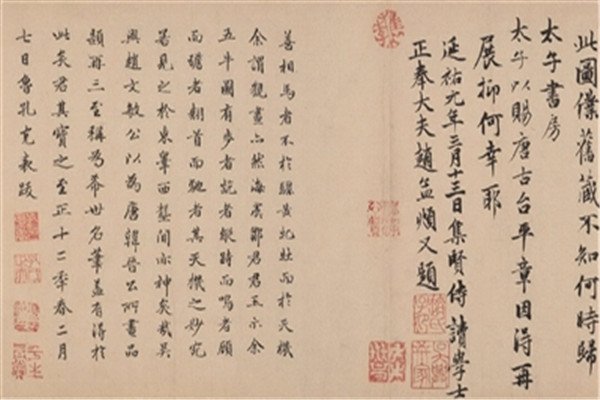 此圖僕舊藏不知何時歸
太子書房
太子以賜唐古台平章因得再
展抑何幸耶
延祐元年三月十三日集賢侍讀學士
正奉大夫趙孟頫又題
善相馬者不於驪黃牝牡而於天機
余謂觀畫亦然海虞鄒君君玉示余
五牛圖有步者齕者縱而鳴者顧
而者翹首而馳者其天機之妙宛
若見之於東皋西壟間亦神矣哉吳
興趙文敏公以為唐韓晉公所畫品
題再三至稱為希世名筆蓋有得於
此矣君其寶之至正十二年春二月
七日魯孔克表跋